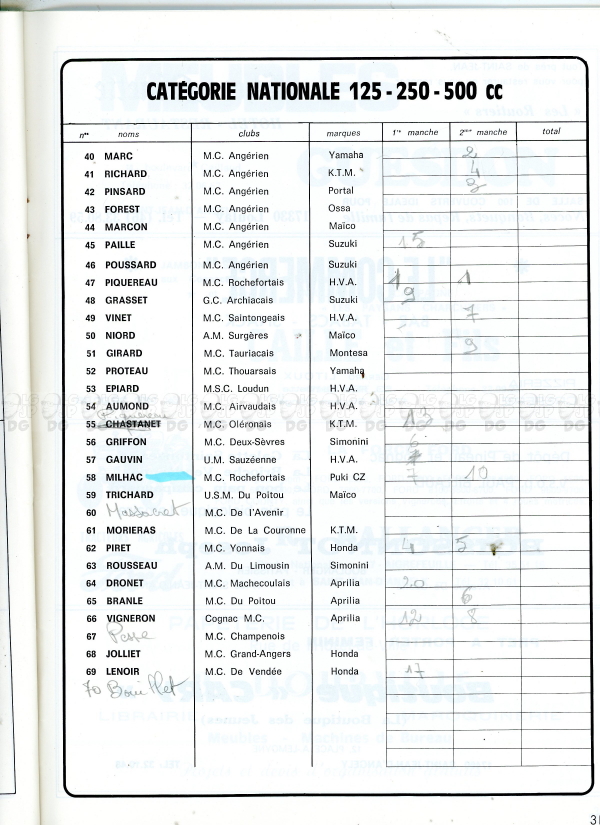 CATÉGORIE NATIONALE 125 - 250 - 500 cc
nos noms clubs marques 1re manche 2me manche total
40 MARC M.C. Angérien Yamaha 2
41 RICHARD M.C. Angérien K.T.M. 4
42 PINSARD M.C. Angérien Portal 3
43 FOREST M.C. Angérien Ossa
44 MARCON M.C. Angérien Maïco
45 PAILLE M.C. Angérien Suzuki 15
46 POUSSARD M.C. Angérien Suzuki
47 PIQUEREAU M.C. Rochefortais H.V.A. 1 1
48 GRASSET G.C. Archiacais Suzuki 9
49 VINET M.C. Saintongeais H.V.A. 7
50 NIORD A.M. Surgères Maïco
51 GIRARD M.C. Tauriacais Montesa 9
52 PROTEAU M.C. Thouarsais Yamaha
53 EPIARD M.S.C. Loudun H.V.A.
54 AUMOND M.C. Airvaudais H.V.A.
55 CHASTANET M.C. Oléronais K.T.M. 13
56 GRIFFON M.C. Deux-Sèvres Simonini 6
57 GAUVIN U.M. Sauzéenne H.V.A.
58 MILHAC M.C. Rochefortais Puki CZ 7 10
59 TRICHARD U.S.M. Du Poitou Maïco
60 Massacret M.C. De l'Avenir
61 MORIERAS M.C. De La Couronne K.T.M.
62 PIRET M.C. Yonnais Honda 4 5
63 ROUSSEAU A.M. Du Limousin Simonini
64 DRONET M.C. Machecoulais Aprilia 20
65 BRANLE M.C. Du Poitou Aprilia 6
66 VIGNERON Cognac M.C. Aprilia 12 8
67 M.C. Champenois
68 JOLLIET M.C. Grand-Angers Honda
69 LENOIR M.C. De Vendée Honda 17
70 Bouillet